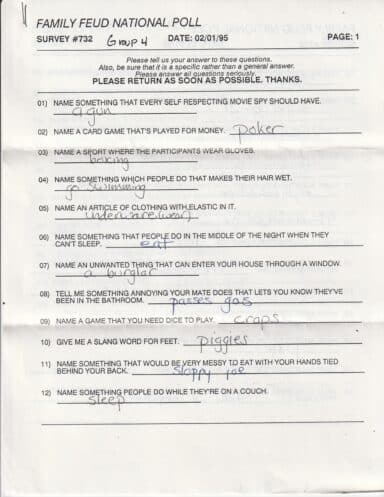 FAMILY FEUD NATIONAL POLL
SURVEY #732 Group 4 DATE: 02/01/95 PAGE: 1
Please tell us your answer to these questions.
Also, be sure that it is a specific rather than a general answer.
Please answer all questions seriously.
PLEASE RETURN AS SOON AS POSSIBLE. THANKS.
01) NAME SOMETHING THAT EVERY SELF RESPECTING MOVIE SPY SHOULD HAVE.
a gun
02) NAME A CARD GAME THAT'S PLAYED FOR MONEY. poker
03) NAME A SPORT WHERE THE PARTICIPANTS WEAR GLOVES.
boxing
04) NAME SOMETHING WHICH PEOPLE DO THAT MAKES THEIR HAIR WET.
go swimming
05) NAME AN ARTICLE OF CLOTHING WITH ELASTIC IN IT.
underware(wear)
06) NAME SOMETHING THAT PEOPLE DO IN THE MIDDLE OF THE NIGHT WHEN THEY
CAN'T SLEEP. eat
07) NAME AN UNWANTED THING THAT CAN ENTER YOUR HOUSE THROUGH A WINDOW.
a burglar
08) TELL ME SOMETHING ANNOYING YOUR MATE DOES THAT LETS YOU KNOW THEY'VE
BEEN IN THE BATHROOM. passes gas
09) NAME A GAME THAT YOU NEED DICE TO PLAY. craps
10) GIVE ME A SLANG WORD FOR FEET. piggies
11) NAME SOMETHING THAT WOULD BE VERY MESSY TO EAT WITH YOUR HANDS TIED
BEHIND YOUR BACK. sloppy joe
12) NAME SOMETHING PEOPLE DO WHILE THEY'RE ON A COUCH.
sleep